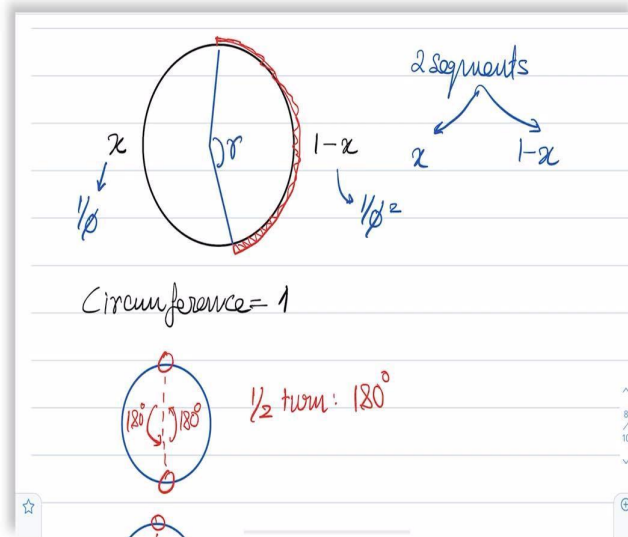 2 segments
x
r
1-x
x
1-x
1/ø
1/ø²
Circumference = 1
180°
180°
1/2 turn: 180°
8
10